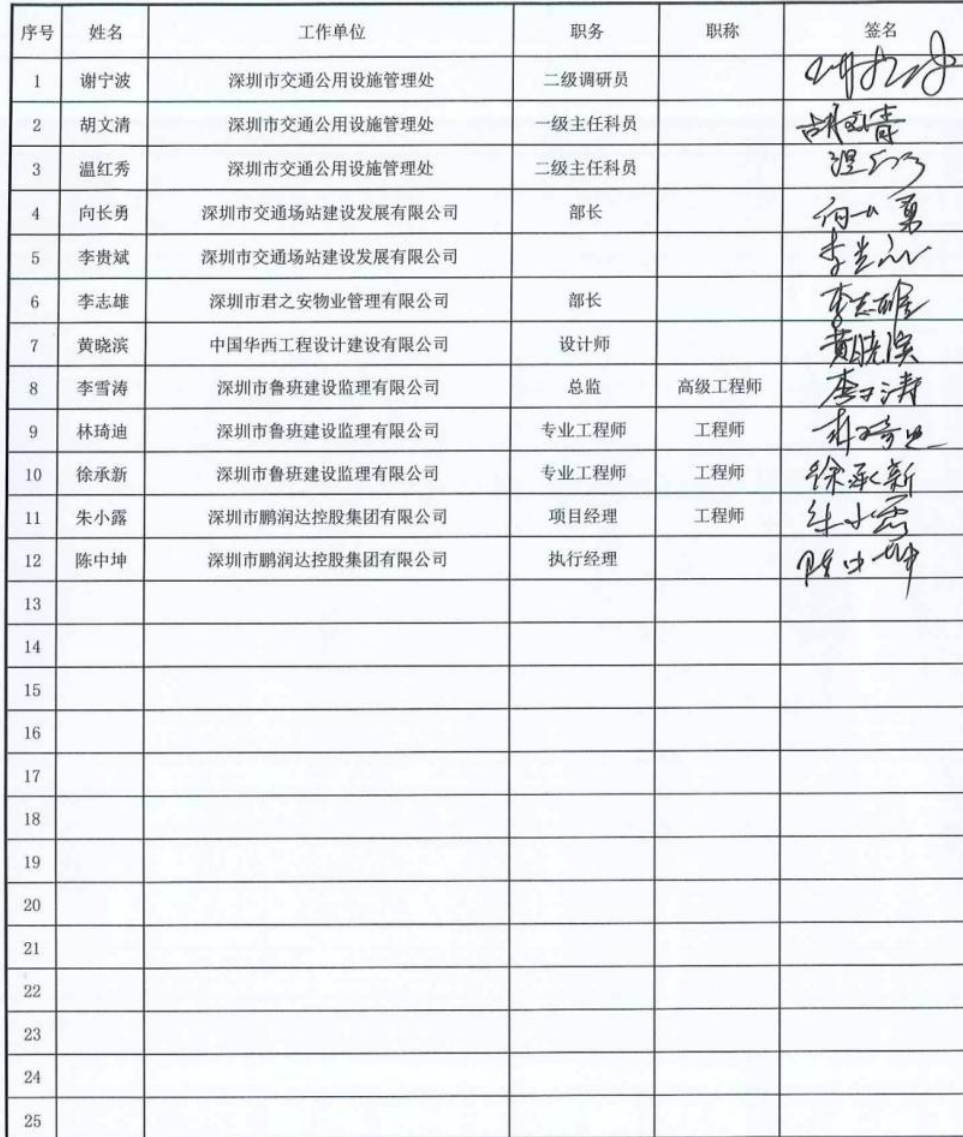 序号 姓名 工作单位 职务 职称 签名
1 谢宁波 深圳市交通公用设施管理处 二级调研员
2 胡文清 深圳市交通公用设施管理处 一级主任科员 胡文清
3 温红秀 深圳市交通公用设施管理处 二级主任科员
4 向长勇 深圳市交通场站建设发展有限公司 部长
5 李贵斌 深圳市交通场站建设发展有限公司
6 李志雄 深圳市君之安物业管理有限公司 部长 李志雄
7 黄晓滨 中国华西工程设计建设有限公司 设计师 黄晓滨
8 李雪涛 深圳市鲁班建设监理有限公司 总监 高级工程师
9 林琦迪 深圳市鲁班建设监理有限公司 专业工程师 工程师
10 徐承新 深圳市鲁班建设监理有限公司 专业工程师 工程师 徐承新
11 朱小露 深圳市鹏润达控股集团有限公司 项目经理 工程师 朱小露
12 陈中坤 深圳市鹏润达控股集团有限公司 执行经理 陈中坤
13
14
15
16
17
18
19
20
21
22
23
24
25